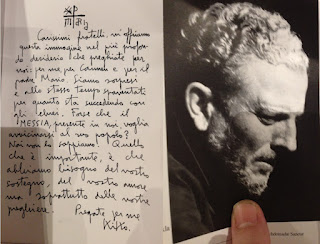 Carissimi fratelli, vi offriamo
questa immagine nel più profon-
do desiderio che preghiate per
noi: per me, per Carmen e per il
padre Mario. Siamo sorpresi
e allo stesso tempo spaventati
per quanto sta succedendo con
gli ebrei. Forse che il
MESSIA, presente in noi voglia
avvicinarsi al suo popolo?
Noi non lo sappiamo! Quello
che è importante, è che
abbiamo bisogno del vostro
sostegno, del vostro amore
ma soprattutto delle vostre
preghiere. Pregate per me
Kiko.